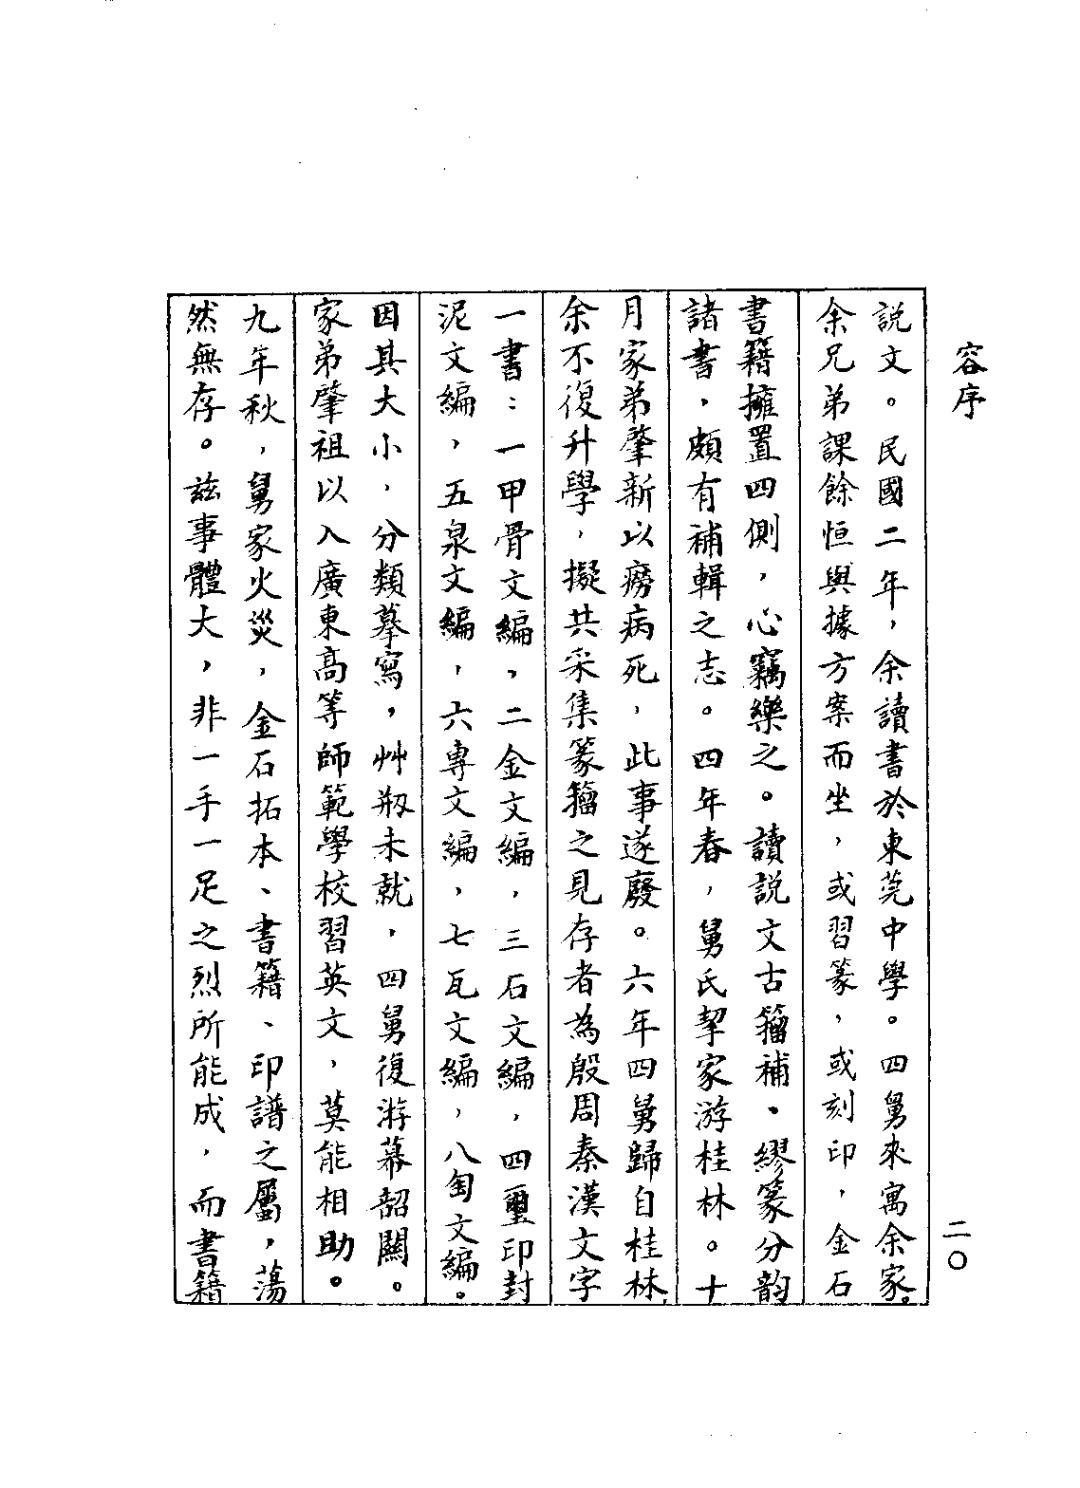 容序
二〇
説文。民國二年，余讀書於東莞中學。四舅來寓余家。
余兄弟課餘恒與據方案而坐，或習篆，或刻印，金石
書籍擁置四側，心竊樂之。讀説文古籀補、繆篆分韵
諸書，頗有補輯之志。四年春，舅氏挈家游桂林。十
月家弟肇新以癆病死，此事遂廢。六年四舅歸自桂林，
余不復升學，擬共采集篆籀之見存者為殷周秦漢文字
一書：一甲骨文編，二金文編，三石文編，四璽印封
泥文編，五泉文編，六專文編，七瓦文編，八匋文編。
因其大小，分類摹寫，艸剏未就，四舅復游幕韶關。
家弟肇祖以入廣東高等師範學校習英文，莫能相助。
九年秋，舅家火災，金石拓本、書籍、印譜之屬，蕩
然無存。茲事體大，非一手一足之烈所能成，而書籍